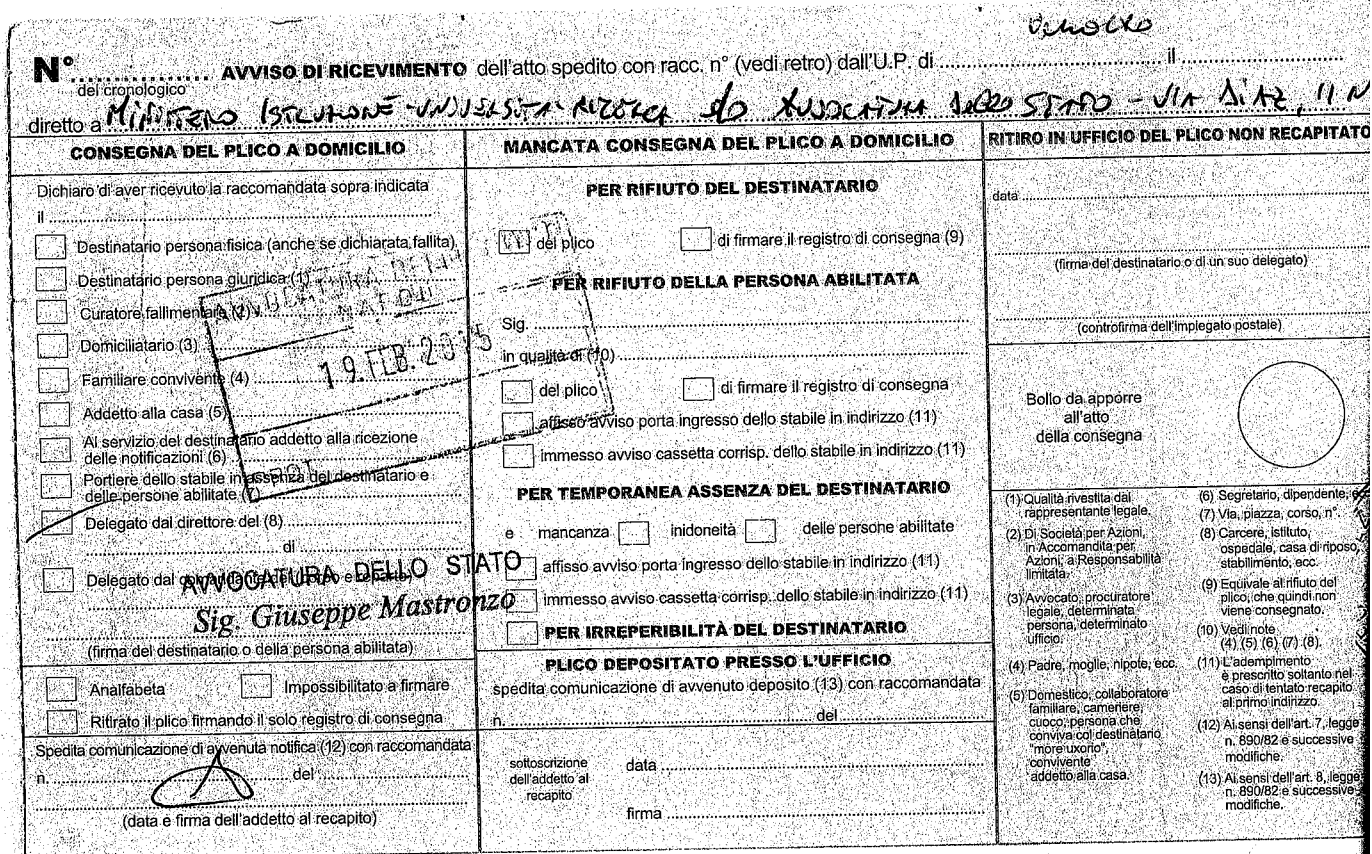 N° ................ AVVISO DI RICEVIMENTO dell'atto spedito con racc. n° (vedi retro) dall'U.P. di ................ il ................
del cronologico
diretto a MINISTERO ISTRUZIONE - UNIVERSITA' RICERCA c/o AVVOCATURA DELLO STATO - VIA DIAZ, 11 N
CONSEGNA DEL PLICO A DOMICILIO
Dichiaro di aver ricevuto la raccomandata sopra indicata
il ................
Destinatario persona fisica (anche se dichiarata fallita)
Destinatario persona giuridica (1)
Curatore fallimentare (2)
Domiciliatario (3)
Familiare convivente (4) ................
Addetto alla casa (5) ................
Al servizio del destinatario addetto alla ricezione
delle notificazioni (6) ................
Portiere dello stabile in assenza del destinatario e
delle persone abilitate (7) ................
Delegato dal direttore del (8) ................
di ................
Delegato dal
AVVOCATURA DELLO STATO
Sig. Giuseppe Mastronzo
(firma del destinatario o della persona abilitata)
Analfabeta
Impossibilitato a firmare
Ritirato il plico firmando il solo registro di consegna
Spedita comunicazione di avvenuta notifica (12) con raccomandata
n. ................ del ................
(data e firma dell'addetto al recapito)
AVVOCATURA DELLO
NAPOLI
19. FEB. 2015
PROT.
MANCATA CONSEGNA DEL PLICO A DOMICILIO
PER RIFIUTO DEL DESTINATARIO
del plico
di firmare il registro di consegna (9)
PER RIFIUTO DELLA PERSONA ABILITATA
Sig. ................
in qualità di (10) ................
del plico
di firmare il registro di consegna
affisso avviso porta ingresso dello stabile in indirizzo (11)
immesso avviso cassetta corrisp. dello stabile in indirizzo (11)
PER TEMPORANEA ASSENZA DEL DESTINATARIO
e mancanza inidoneità delle persone abilitate
affisso avviso porta ingresso dello stabile in indirizzo (11)
immesso avviso cassetta corrisp. dello stabile in indirizzo (11)
PER IRREPERIBILITÀ DEL DESTINATARIO
PLICO DEPOSITATO PRESSO L'UFFICIO
spedita comunicazione di avvenuto deposito (13) con raccomandata
n. ................ del ................
sottoscrizione
dell'addetto al
recapito
data ................
firma ................
RITIRO IN UFFICIO DEL PLICO NON RECAPITATO
data ................
(firma del destinatario o di un suo delegato)
(controfirma dell'impiegato postale)
Bollo da apporre
all'atto
della consegna
(1) Qualità rivestita dal
rappresentante legale.
(2) Di Società per Azioni,
in Accomandita per
Azioni, a Responsabilità
limitata.
(3) Avvocato, procuratore
legale, determinata
persona, determinato
ufficio.
(4) Padre, moglie, nipote, ecc.
(5) Domestico, collaboratore
familiare, cameriere,
cuoco, persona che
conviva col destinatario
"more uxorio",
convivente
addetto alla casa.
(6) Segretario, dipendente, e
(7) Via, piazza, corso, n°.
(8) Carcere, istituto,
ospedale, casa di riposo,
stabilimento, ecc.
(9) Equivale al rifiuto del
plico, che quindi non
viene consegnato.
(10) Vedi note
(4) (5) (6) (7) (8).
(11) L'adempimento
è prescritto soltanto nel
caso di tentato recapito
al primo indirizzo.
(12) Ai sensi dell'art. 7, legge
n. 890/82 e successive
modifiche.
(13) Ai sensi dell'art. 8, legge
n. 890/82 e successive
modifiche.